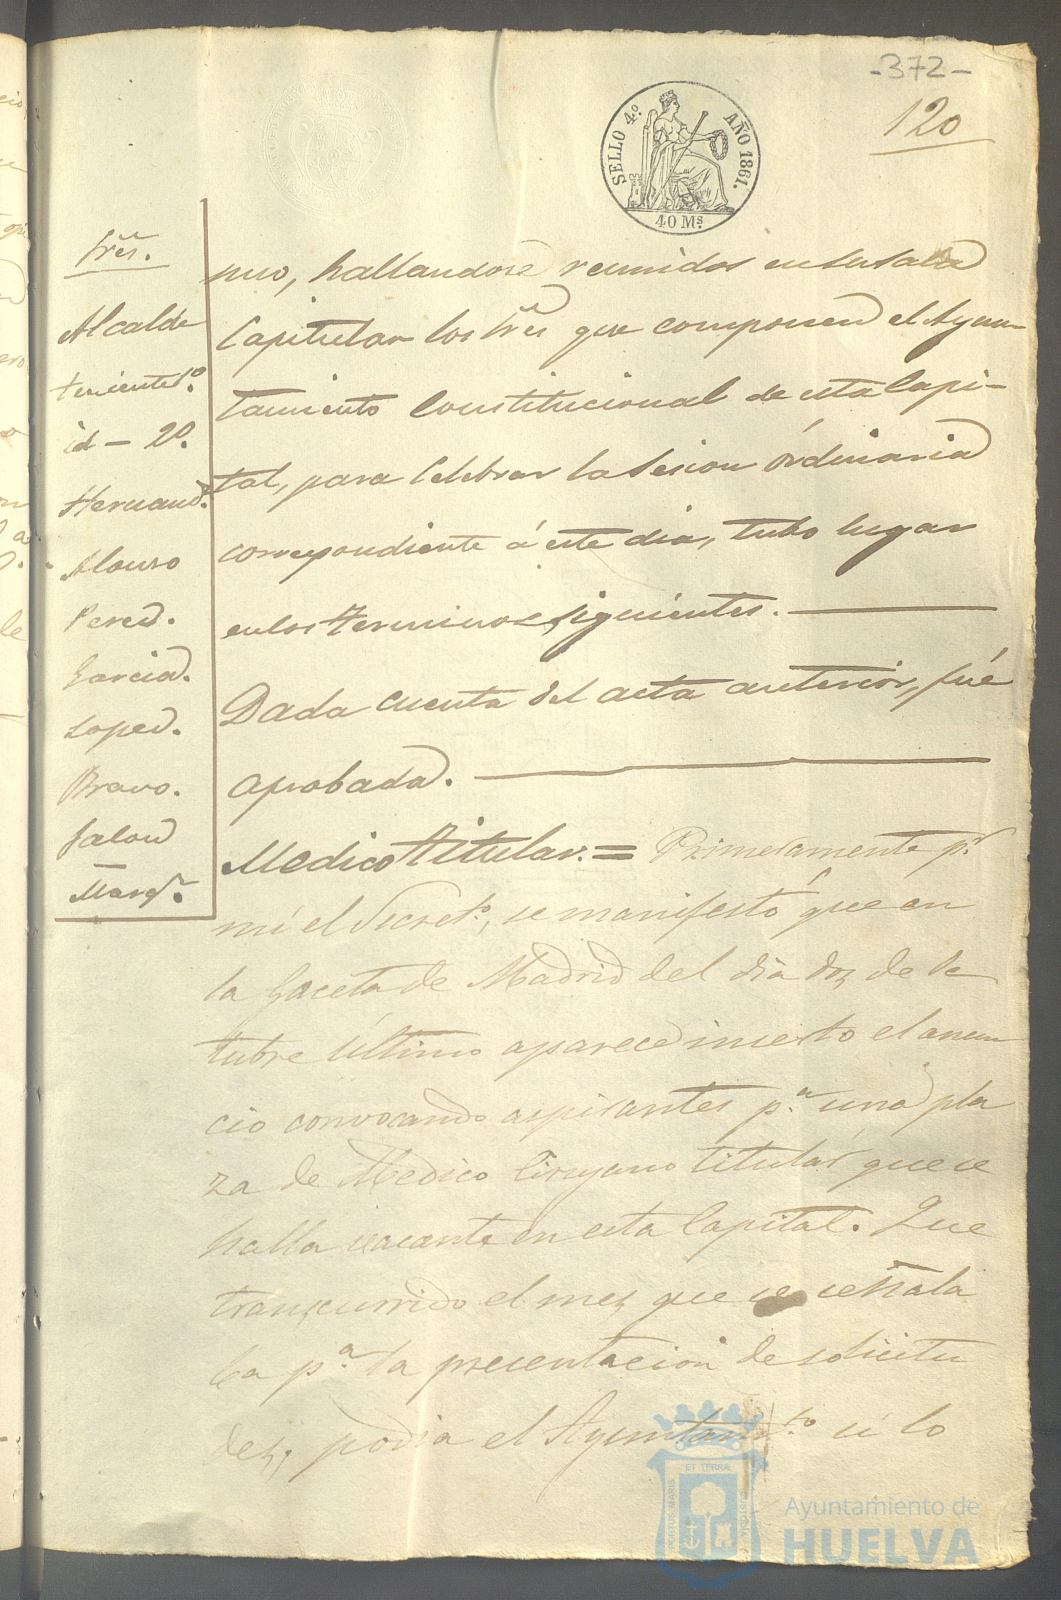 -372-
120
SELLO 4.º AÑO 1861.
40 Ms
Sres.
Alcalde
teniente 1º.
id - 2º.
Hernand.
Alonso
Pered.
Garcia.
Loped.
Bravo.
Jalon
Marqr.
puo, hallandose reunidos en su sala
Capitular los Sres que componen el Ayun-
tamiento Constitucional de esta Capi-
tal, para Celebrar la Sesion órdinaria
correspondiente á este dia, tubo lugar
en los terminos siguientes.
Dada cuenta del acta anterior, fué
aprobada.
Medico titular. = Primeramente pr
mi el Secreto, se manifestó que en
la Gaceta de Madrid del dia dos de Oc
tubre último aparece inserto el anun
cio convocando aspirantes p.a una pla
za de Medico Cirujano titular que se
halla vacante en esta Capital. Que
transcurrido el mes que se señala
ba p.a la presentacion de solicitu
des, podia el Ayuntamto. si lo
ET TERRAE
PORTUS MARIS
CUSTODIA
Ayuntamiento de
HUELVA